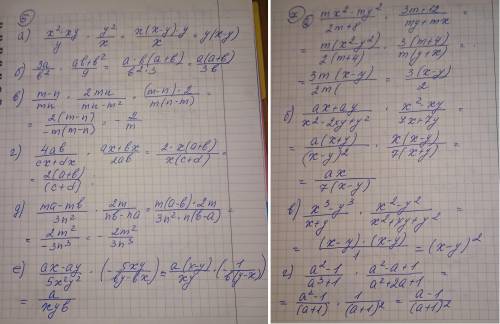 ⑤
а) (x²-xy)/y · y²/x = x(x-y)·y/x = y(x-y)
б) 3a/b² · (ab+b²)/9 = a·b(a+b)/(b²·3) = a(a+b)/3b
в) (m-n)/mn · 2mn/(mn-m²) = (m-n)·2/m(n-m) =
= 2(m-n)/-m(m-n) = -2/m
г) 4ab/(cx+dx) · (ax+bx)/2ab = 2·x(a+b)/x(c+d) =
= 2(a+b)/(c+d)
д) (ma-mb)/3n² · 2m/(nb-na) = m(a-b)·2m/3n²·n(b-a) =
= 2m²/-3n³ = -2m²/3n³
е) (ax-ay)/5x²y² · (-5xy/(by-bx)) = a(x-y)/xy · (-1/b(y-x))
= a/xyb
а) (mx²-my²)/(2m+8) · (3m+12)/(my+mx) =
= m(x²-y²)/2(m+4) · 3(m+4)/m(y+x) =
= 3m(x-y)/2m( = 3(x-y)/2
б) (ax+ay)/(x²-2xy+y²) · (x²-xy)/(7x+7y) =
= a(x+y)/(x-y)² · x(x-y)/7(x+y) =
= ax/7(x-y)
в) (x³-y³)/(x+y) · (x²-y²)/(x²+xy+y²) =
= (x-y)·(x-y)/1 = (x-y)²
г) (a²-1)/(a³+1) · (a²-a+1)/(a²+2a+1) =
= (a²-1)/(a+1) · 1/(a+1)² = (a-1)/(a+1)²